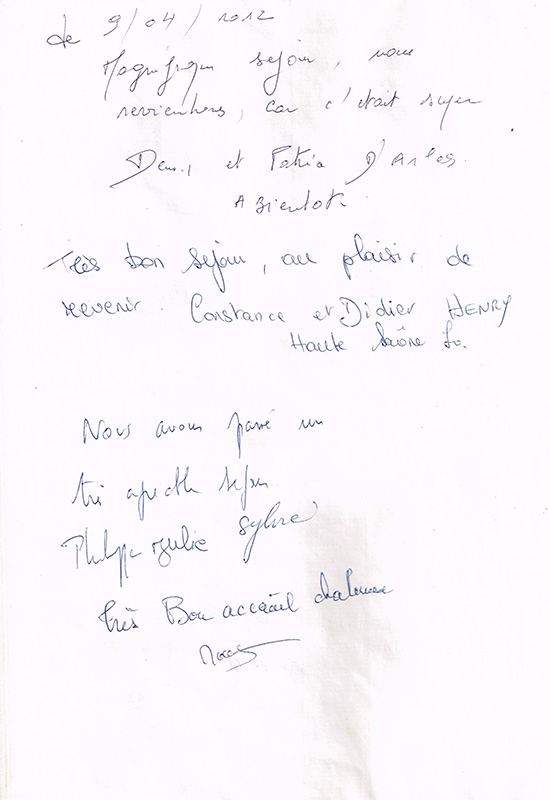 Le 9/04/2012
Magnifique séjour, nous
reviendrons, car c'était super
Denis et Patricia D'Arles.
A Bientot.
Très bon séjour, au plaisir de
revenir. Constance et Didier HENRY
Haute Saône
Nous avons passé un
très agréable séjour
Philippe Julie Sylvie
très Bon accueil chaleureux